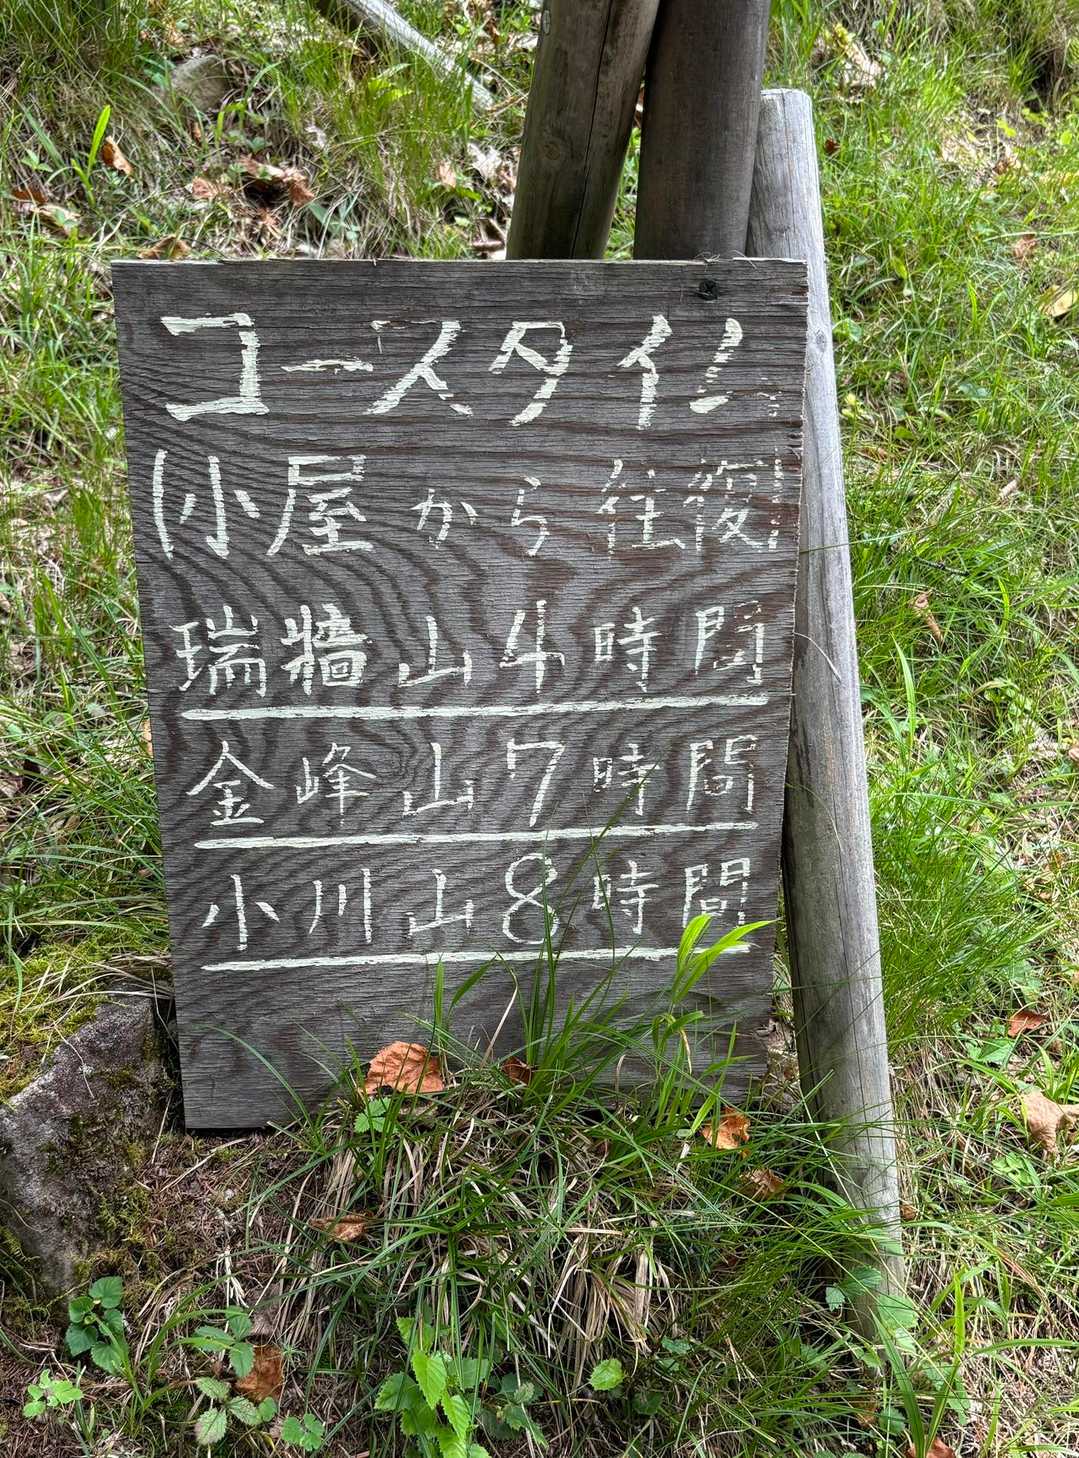 コースタイム
(小屋から往復)
瑞牆山4時間
金峰山7時間
小川山8時間